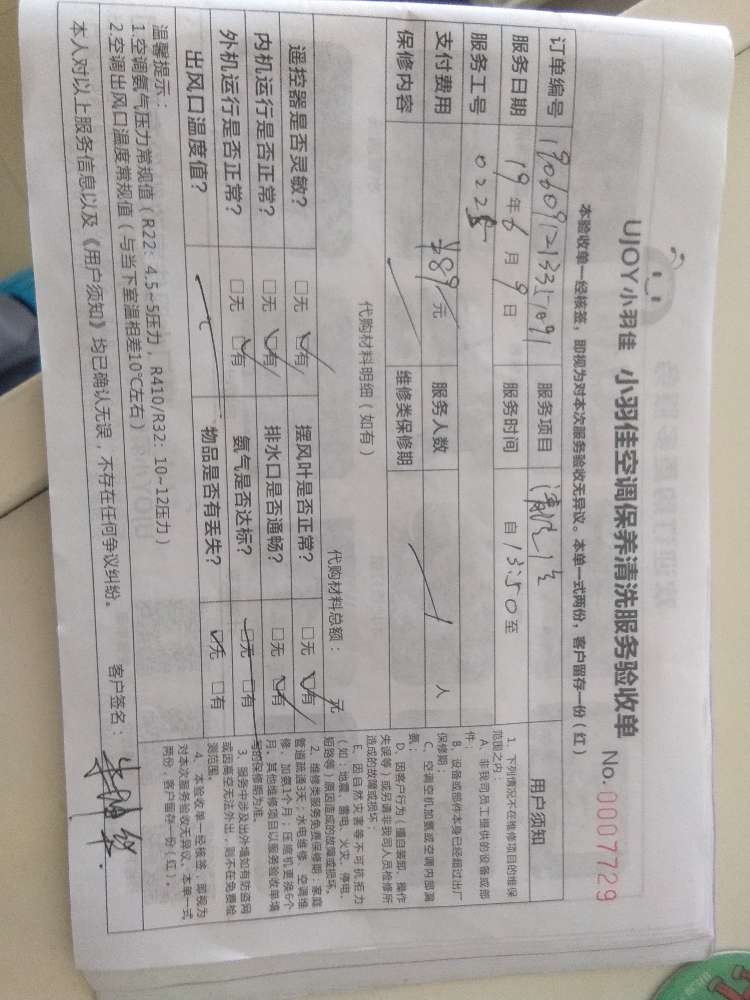 UJOY小羽佳 小羽佳空调保养清洗服务验收单 No. 0007729
本验收单一经核签,即视为对本次服务验收无异议。本单一式两份,客户留存一份(红)
订单编号 服务项目 清洗
服务日期 19年6月9日 服务时间 自13:50至
服务工号 0228
支付费用 ¥89元 服务人数 1人
保修内容 维修类保修期
代购材料明细(如有) 代购材料总额: 元
遥控器是否灵敏? □无 □有 摆风叶是否正常? □无 □有
内机运行是否正常? □无 □有 排水口是否通畅? □无 □有
外机运行是否正常? □无 □有 氨气是否达标? □无 □有
出风口温度值? 物品是否有丢失? □无 □有
温馨提示:
1.空调氨气压力常规值(R22: 4.5~5压力, R410/R32: 10~12压力)
2.空调出风口温度常规值(与当下室温相差10℃左右)
本人对以上服务信息以及《用户须知》均已确认无误,不存在任何争议纠纷。 客户签名:
用户须知
1、下列情况不在维修项目的维保
范围之内:
A、非我司员工提供的设备或部
件;
B、设备或部件本身已经超过出厂
保修期;
C、空调空机加氨或空调内部漏
氨;
D、因客户行为(擅自装卸、操作
失误等)或另请非我司人员检修所
造成的故障或损坏;
E、因自然灾害等不可抗拒力
(如:地震、雷电、火灾、停电、
短路等)原因造成的故障或损坏。
2、维修类服务免费保修期:家庭
管道疏通3天;水电维修、空调维
修、加氨1个月;压缩机更换6个
月。其他维修项目以服务验收单填
写的保修期为准。
3、服务中涉及出外墙如有防盗网
或因高空无法外出,则不在免费检
测范围。
4、本验收单一经核签,即视为
对本次服务验收无异议。本单一式
两份,客户留存一份(红)。